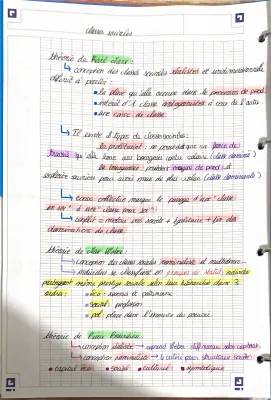 classes sociales
théorie de Karl Marx :
↳ conception des classes sociales réalistes et unidimensionnelle
définit à partir :
• la place qu'elle occupe dans le processus de prod°
• intérêt d'1 classe antagonistes à ceux de l'autre.
• une csce de classe.
↳ Il existe 2 types de classes sociales :
la prolétariat : ne possède que sa force de
travail qu'ils loue aux bourgeois contre salaire (classe dominée)
la bourgeoisie : possèdent moyens de prod° et
exploite ouvriers pour avoir + de plus-value (classe dominante)
↳ csce collective marque le passage d'une "classe
en soi" à une "classe pour soi"
↳ conflit = moteur des sociétés + égalitaire + fin des
dominations de classe.
théorie de Max Weber :
↳ conception des classes sociales nominaliste et multidimen-
↳ individus se classifient en groupes de statut, individus
partageant même prestige sociale selon leur hiérarchie dans 3
ordres :
• éco : revenus et patrimoine
• social : profession
• pol : place dans l'exercice du pouvoir.
théorie de Pierre Bourdieu
↳ conception réaliste
↳ conception nominaliste → 4 critères pour structurer société :
• capital éco • social • culturel • symbolique